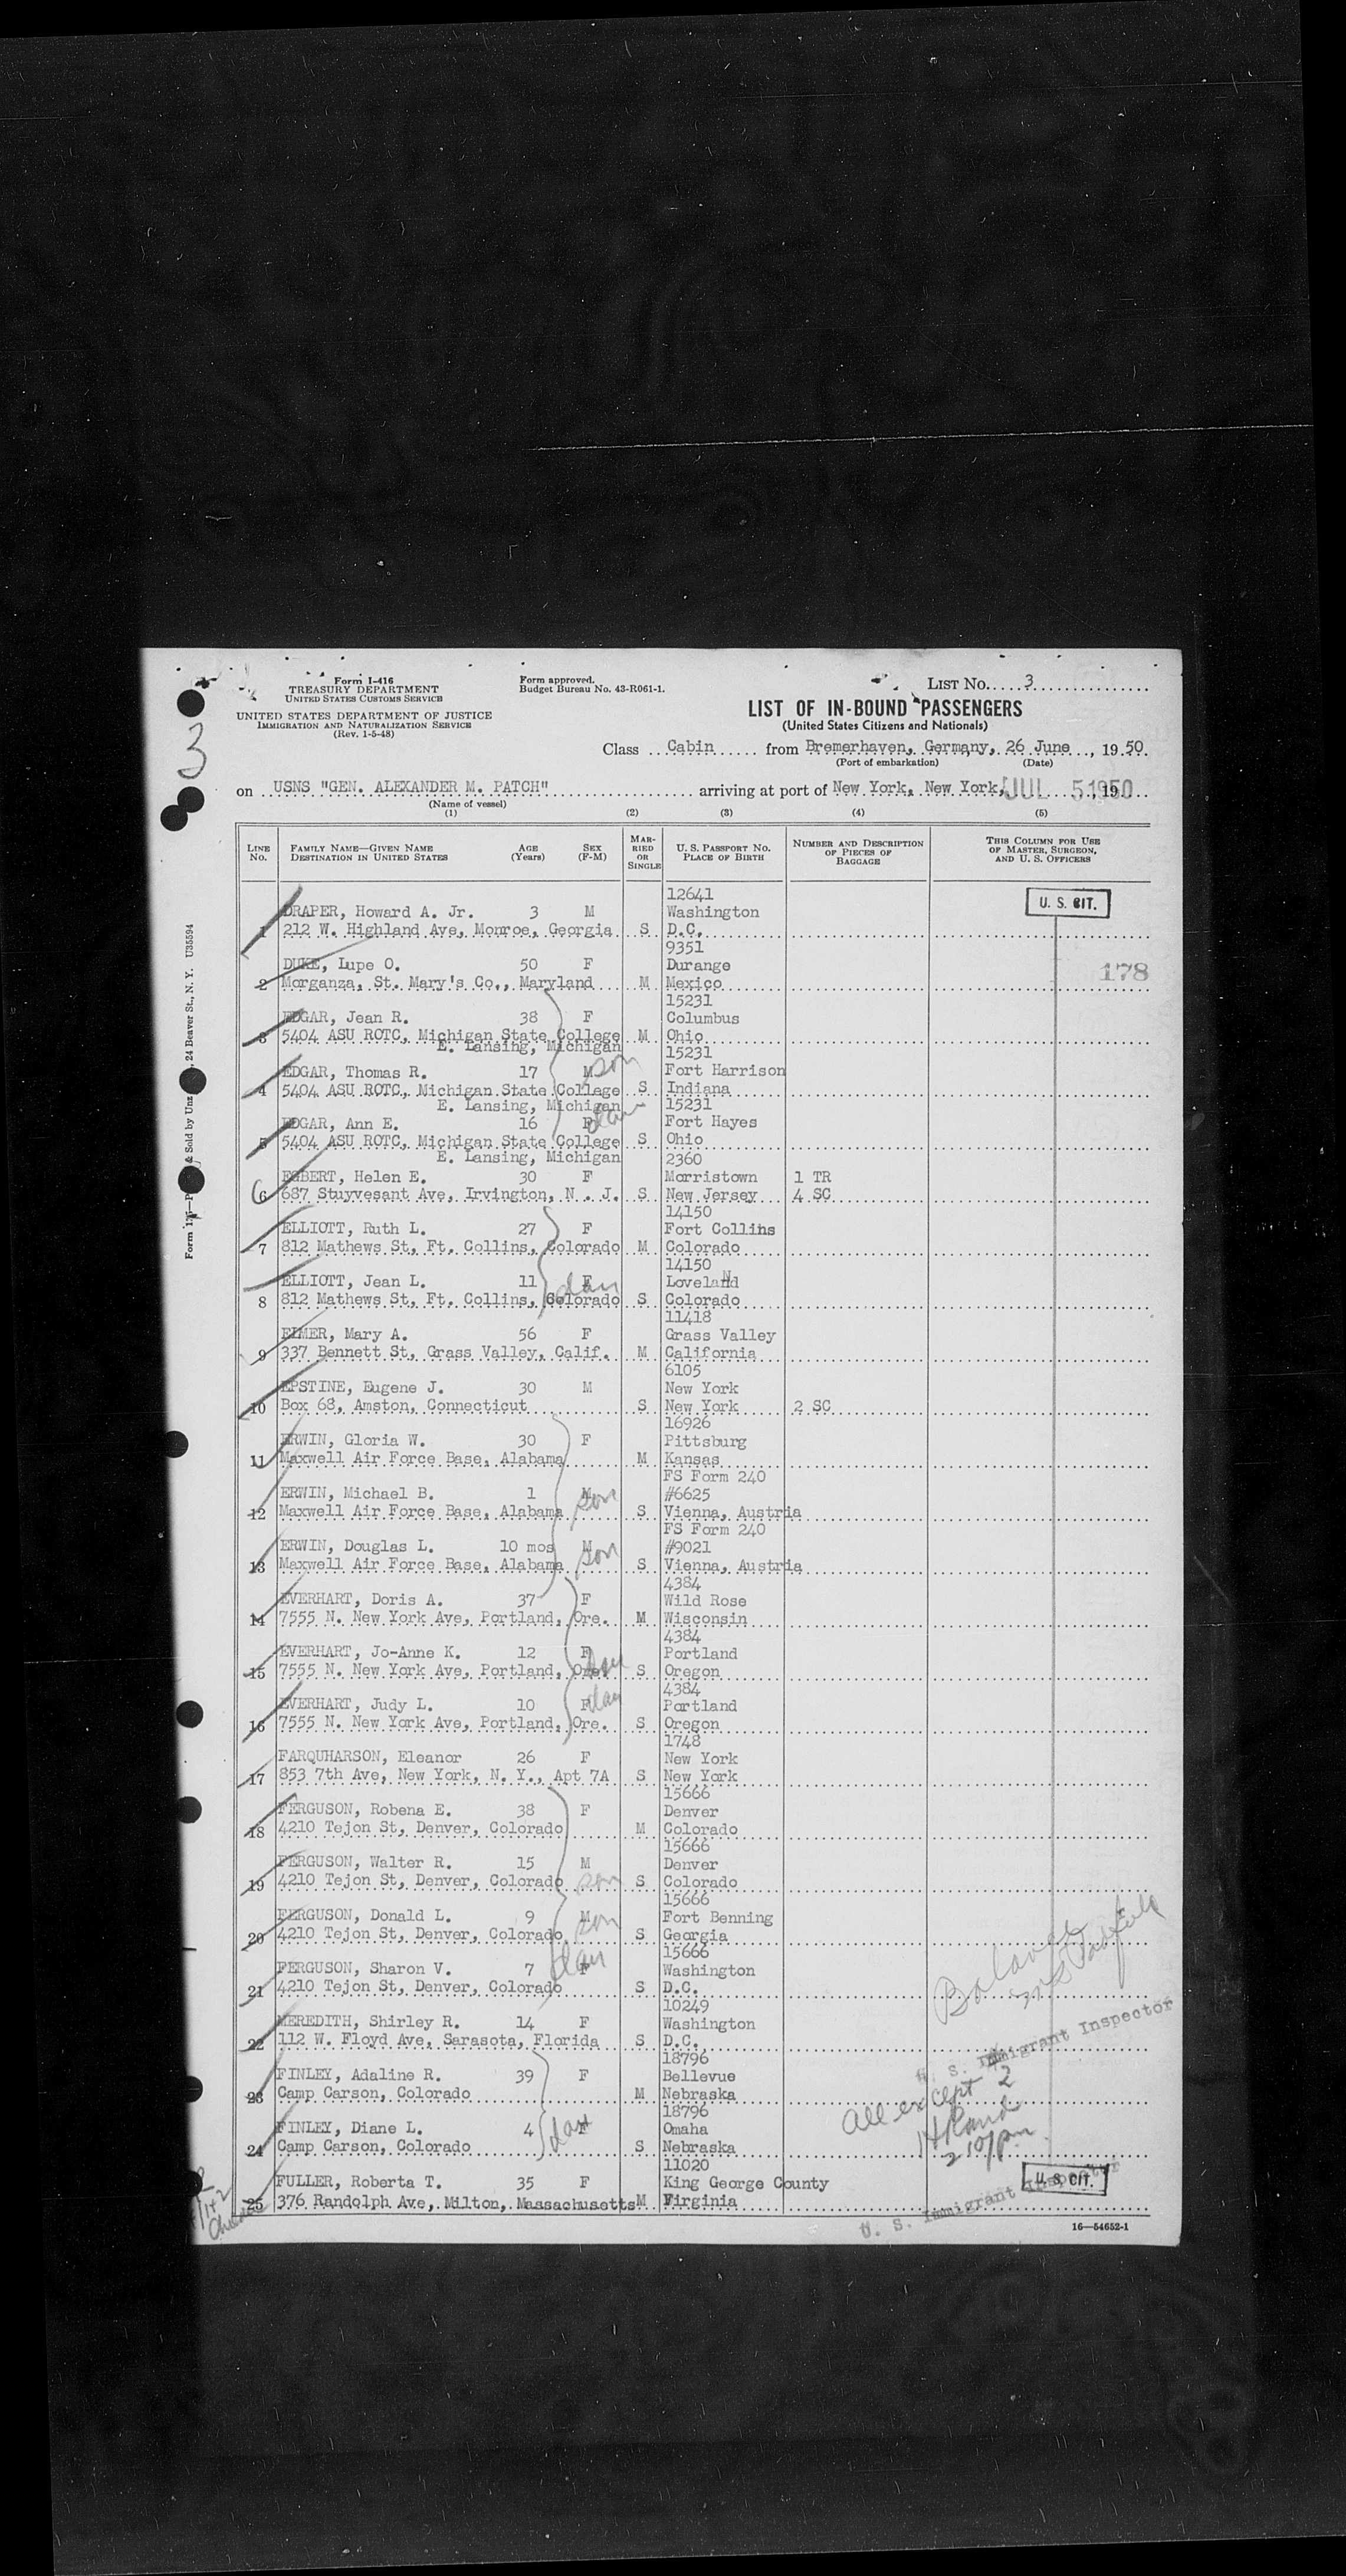 Form I-416
TREASURY DEPARTMENT
UNITED STATES CUSTOMS SERVICE
UNITED STATES DEPARTMENT OF JUSTICE
IMMIGRATION AND NATURALIZATION SERVICE
(Rev. 1-5-48)
Form approved.
Budget Bureau No. 43-R061-1.
LIST No. 3
LIST OF IN-BOUND PASSENGERS
(United States Citizens and Nationals)
3
Class Cabin from Bremerhaven, Germany, 26 June, 1950
(Port of embarkation) (Date)
on USNS "GEN. ALEXANDER M. PATCH" arriving at port of New York, New York, JUL 5 1950, 19
(Name of vessel)
(1) (2) (3) (4) (5)
LINE No. FAMILY NAME—GIVEN NAME DESTINATION IN UNITED STATES AGE (Years) SEX (F-M) MARRIED OR SINGLE U. S. PASSPORT NO. PLACE OF BIRTH NUMBER AND DESCRIPTION OF PIECES OF BAGGAGE THIS COLUMN FOR USE OF MASTER, SURGEON, AND U. S. OFFICERS
12641
DRAPER, Howard A. Jr. 3 M Washington U. S. CIT.
1 212 W. Highland Ave, Monroe, Georgia S D.C.
9351
DUKE, Lupe O. 50 F Durange 178
2 Morganza, St. Mary's Co., Maryland M Mexico
15231
EDGAR, Jean R. 38 F Columbus
3 5404 ASU ROTC, Michigan State College M Ohio
E. Lansing, Michigan 15231
EDGAR, Thomas R. 17 M son Fort Harrison
4 5404 ASU ROTC, Michigan State College S Indiana
E. Lansing, Michigan 15231
EDGAR, Ann E. 16 F dau Fort Hayes
5 5404 ASU ROTC, Michigan State College S Ohio
E. Lansing, Michigan 2360
EGBERT, Helen E. 30 F Morristown 1 TR
6 687 Stuyvesant Ave, Irvington, N. J. S New Jersey 4 SC
14150
ELLIOTT, Ruth L. 27 F Fort Collins
7 812 Mathews St, Ft. Collins, Colorado M Colorado
14150
ELLIOTT, Jean L. 11 F dau Loveland
8 812 Mathews St, Ft. Collins, Colorado S Colorado
11418
ELMER, Mary A. 56 F Grass Valley
9 337 Bennett St, Grass Valley, Calif. M California
6105
EPSTINE, Eugene J. 30 M New York
10 Box 68, Amston, Connecticut S New York 2 SC
16926
ERWIN, Gloria W. 30 F Pittsburg
11 Maxwell Air Force Base, Alabama M Kansas
FS Form 240
ERWIN, Michael B. 1 M son #6625
12 Maxwell Air Force Base, Alabama S Vienna, Austria
FS Form 240
ERWIN, Douglas L. 10 mos M son #9021
13 Maxwell Air Force Base, Alabama S Vienna, Austria
4384
EVERHART, Doris A. 37 F Wild Rose
14 7555 N. New York Ave, Portland, Ore. M Wisconsin
4384
EVERHART, Jo-Anne K. 12 F dau Portland
15 7555 N. New York Ave, Portland, Ore. S Oregon
4384
EVERHART, Judy L. 10 F dau Portland
16 7555 N. New York Ave, Portland, Ore. S Oregon
1748
FARQUHARSON, Eleanor 26 F New York
17 853 7th Ave, New York, N. Y., Apt 7A S New York
15666
FERGUSON, Robena E. 38 F Denver
18 4210 Tejon St, Denver, Colorado M Colorado
15666
FERGUSON, Walter R. 15 M Denver
19 4210 Tejon St, Denver, Colorado son S Colorado
15666
FERGUSON, Donald L. 9 M son Fort Benning
20 4210 Tejon St, Denver, Colorado S Georgia
15666
FERGUSON, Sharon V. 7 F dau Washington
21 4210 Tejon St, Denver, Colorado S D.C.
10249
MEREDITH, Shirley R. 14 F Washington
22 112 W. Floyd Ave, Sarasota, Florida S D.C.
U. S. Immigrant Inspector
18796
FINLEY, Adaline R. 39 F Bellevue
23 Camp Carson, Colorado M Nebraska
All except 2
18796
FINLEY, Diane L. 4 F dau Omaha
24 Camp Carson, Colorado S Nebraska
11020
FULLER, Roberta T. 35 F King George County U. S. CIT.
25 376 Randolph Ave, Milton, Massachusetts M Virginia
U. S. Immigrant Inspector
16—54652-1
24 Beaver St., N. Y. U35594